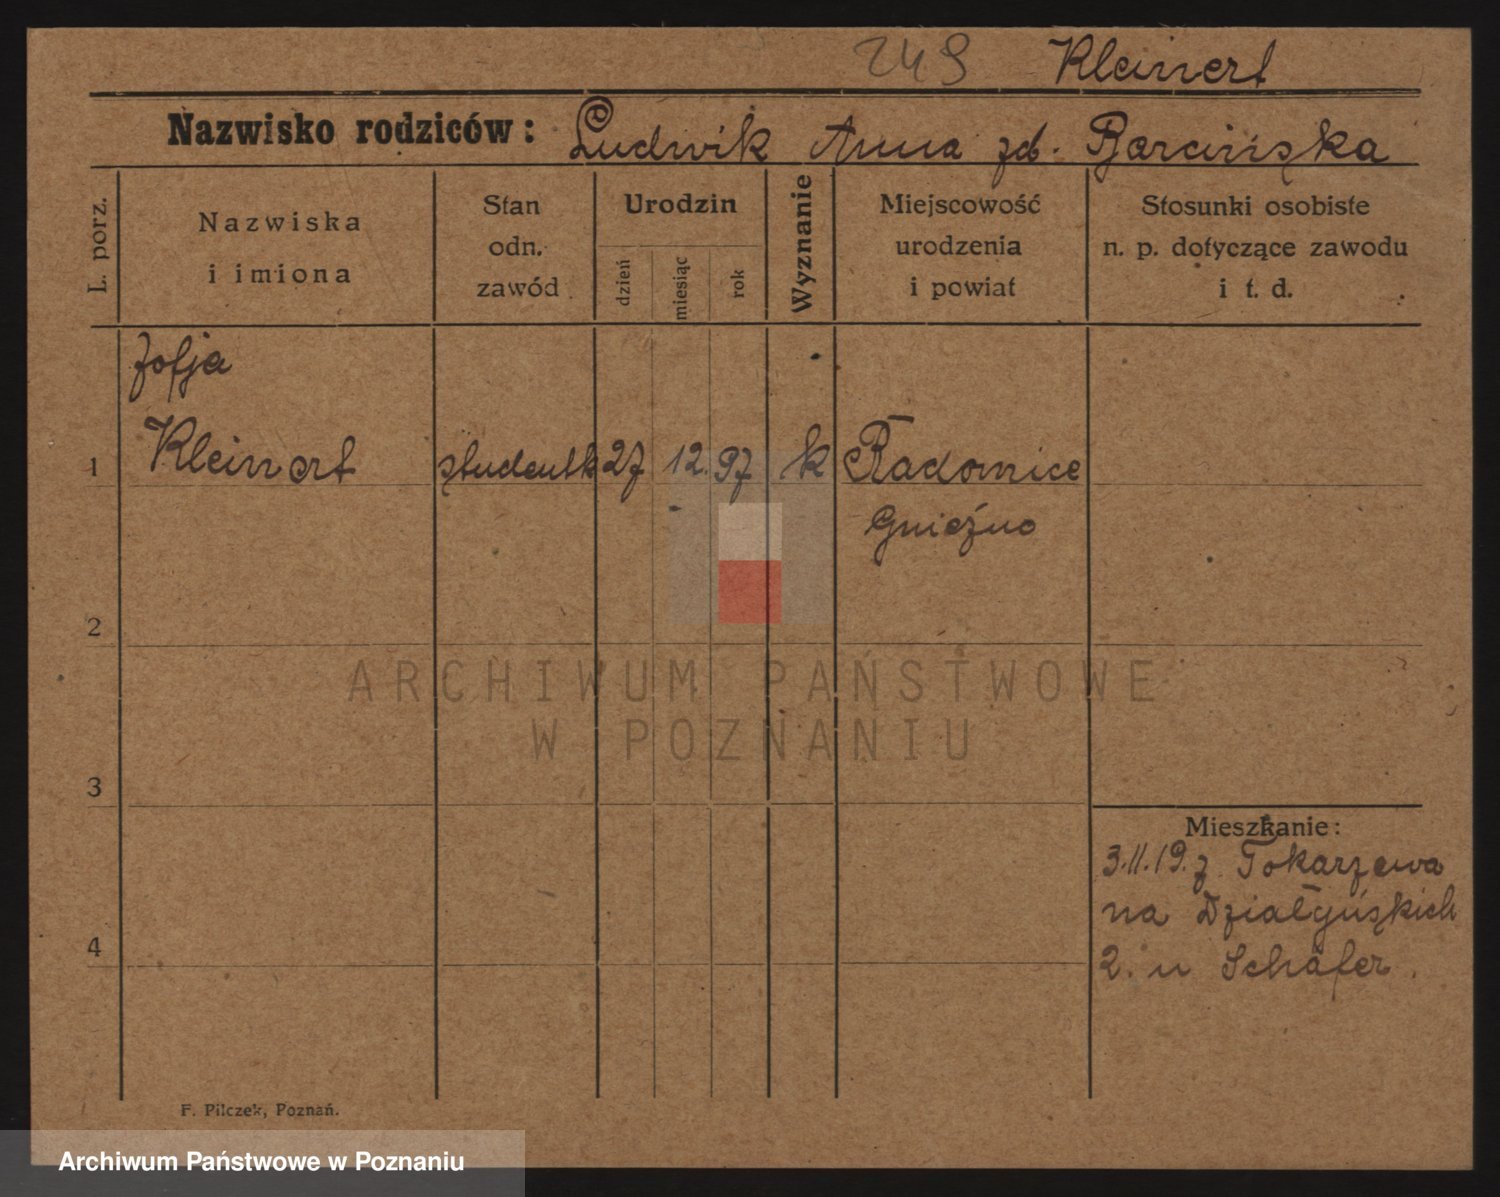 249 Kleinert
Nazwisko rodziców: Ludwik Anna zd. Barcińska
L. porz.
Nazwiska
i imiona
Stan
odn.
zawód
Urodzin
dzień
miesiąc
rok
Wyznanie
Miejscowość
urodzenia
i powiat
Stosunki osobiste
n. p. dotyczące zawodu
i t. d.
Zofja
1 Kleinert studentk 27 12. 97 k Radomice
Gniezno
2
ARCHIWUM PAŃSTWOWE
W POZNANIU
3
Mieszkanie:
3.11.19. z Tokarzewa
na Działyńskich
4
2. u Schäfer.
F. Pilczek, Poznań.
Archiwum Państwowe w Poznaniu